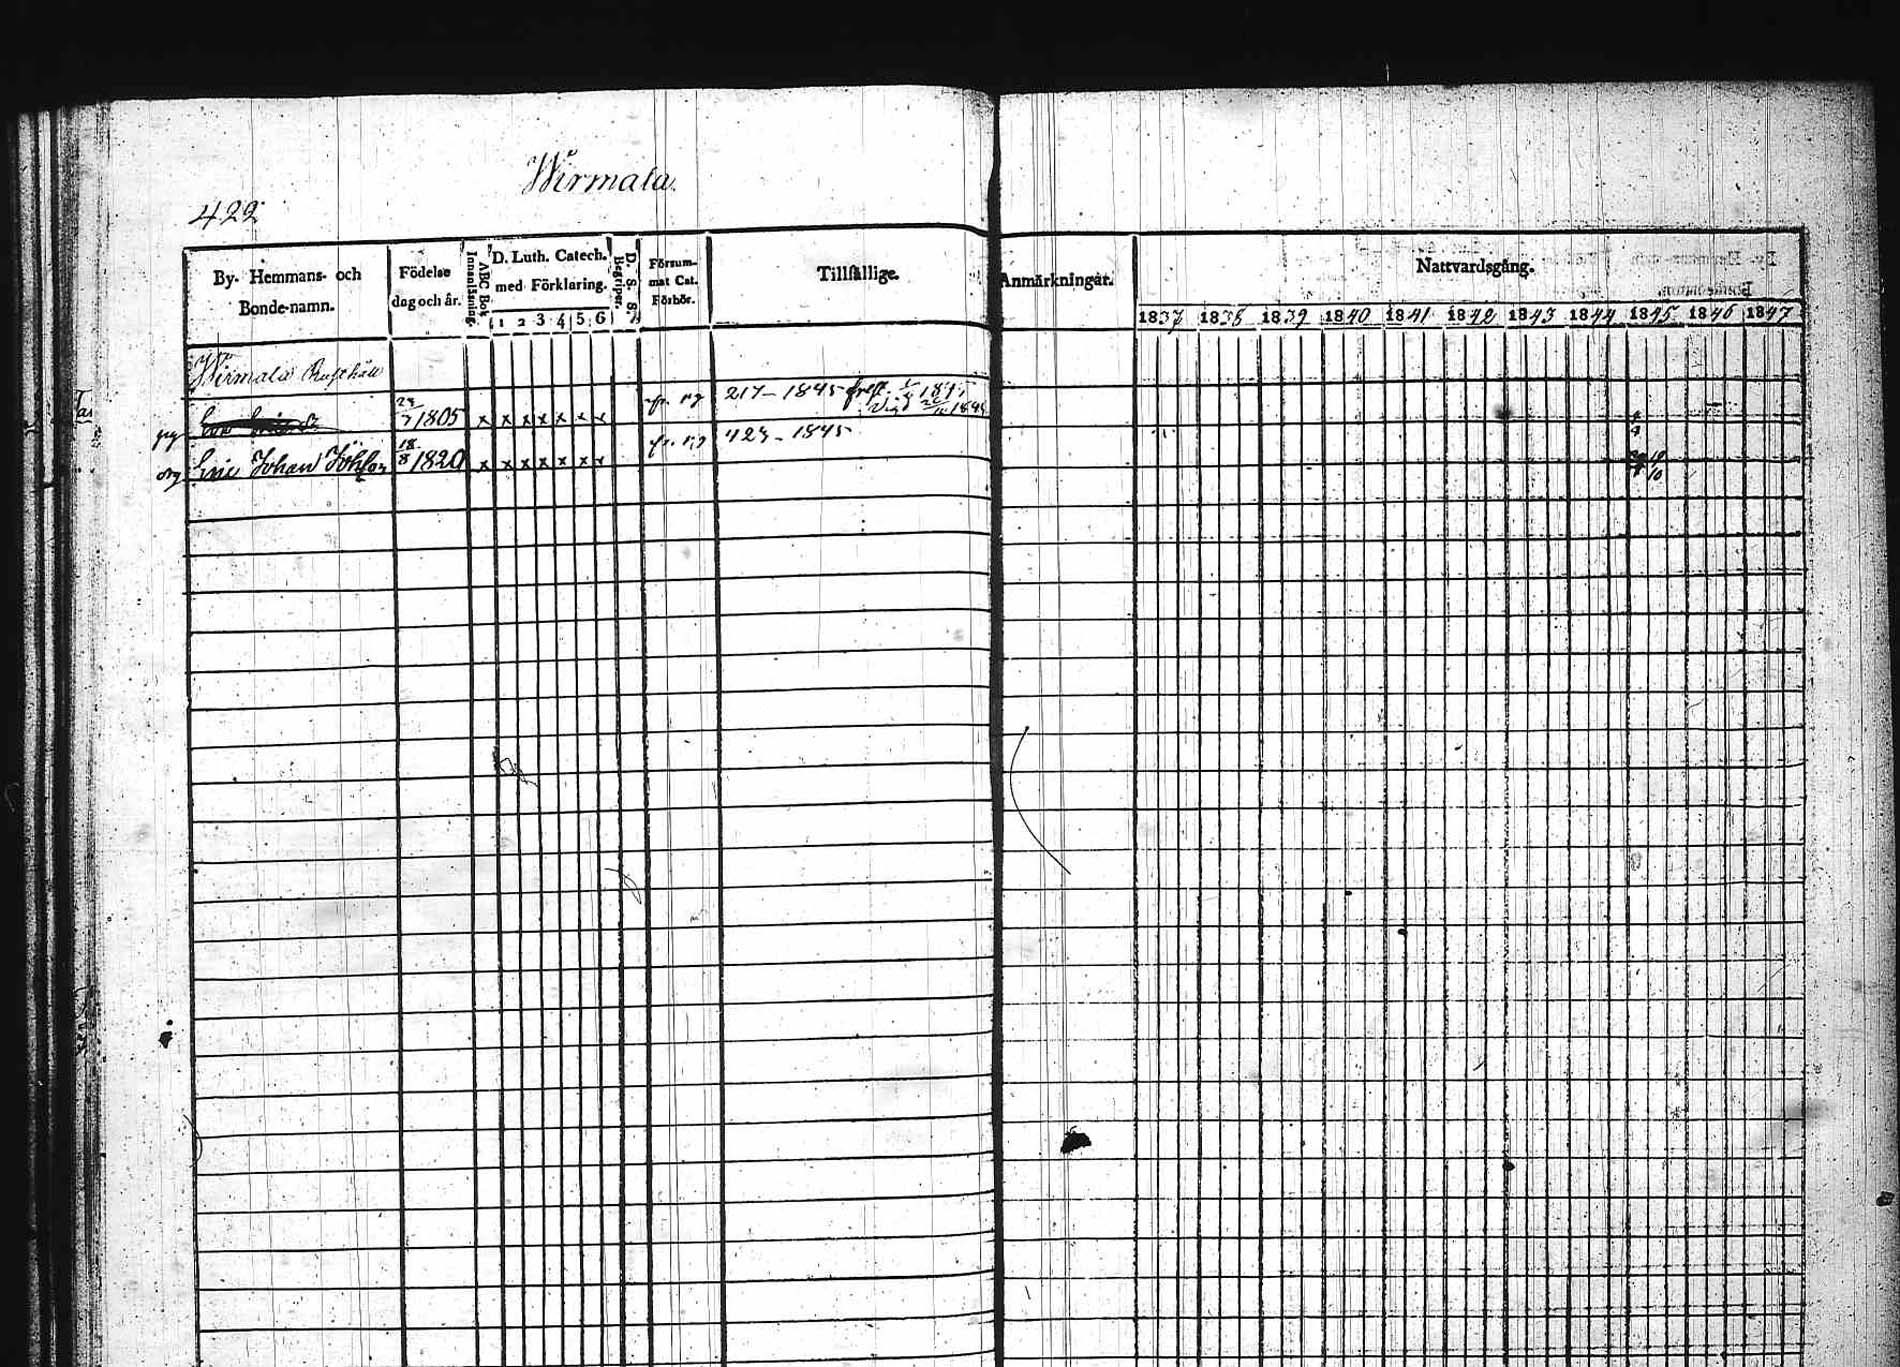 Wirmala
422
By- Hemmans- och Bonde-namn.
Födelse dag och år.
ABC Bok Innanläsning.
D. Luth. Catech. med Förklaring.
1 2 3 4 5 6
D. S. S. Begriper.
Försummat Cat. Förhör.
Tillfällige Anmärkningar.
Nattvardsgång.
1837 1838 1839 1840 1841 1842 1843 1844 1845 1846 1847
Wirmala Rusthåll
1805 x x x x x x x fr. 217 - 1845
Eric Johan Johsson 18/8 1820 x x x x x x x fr. 423 - 1845